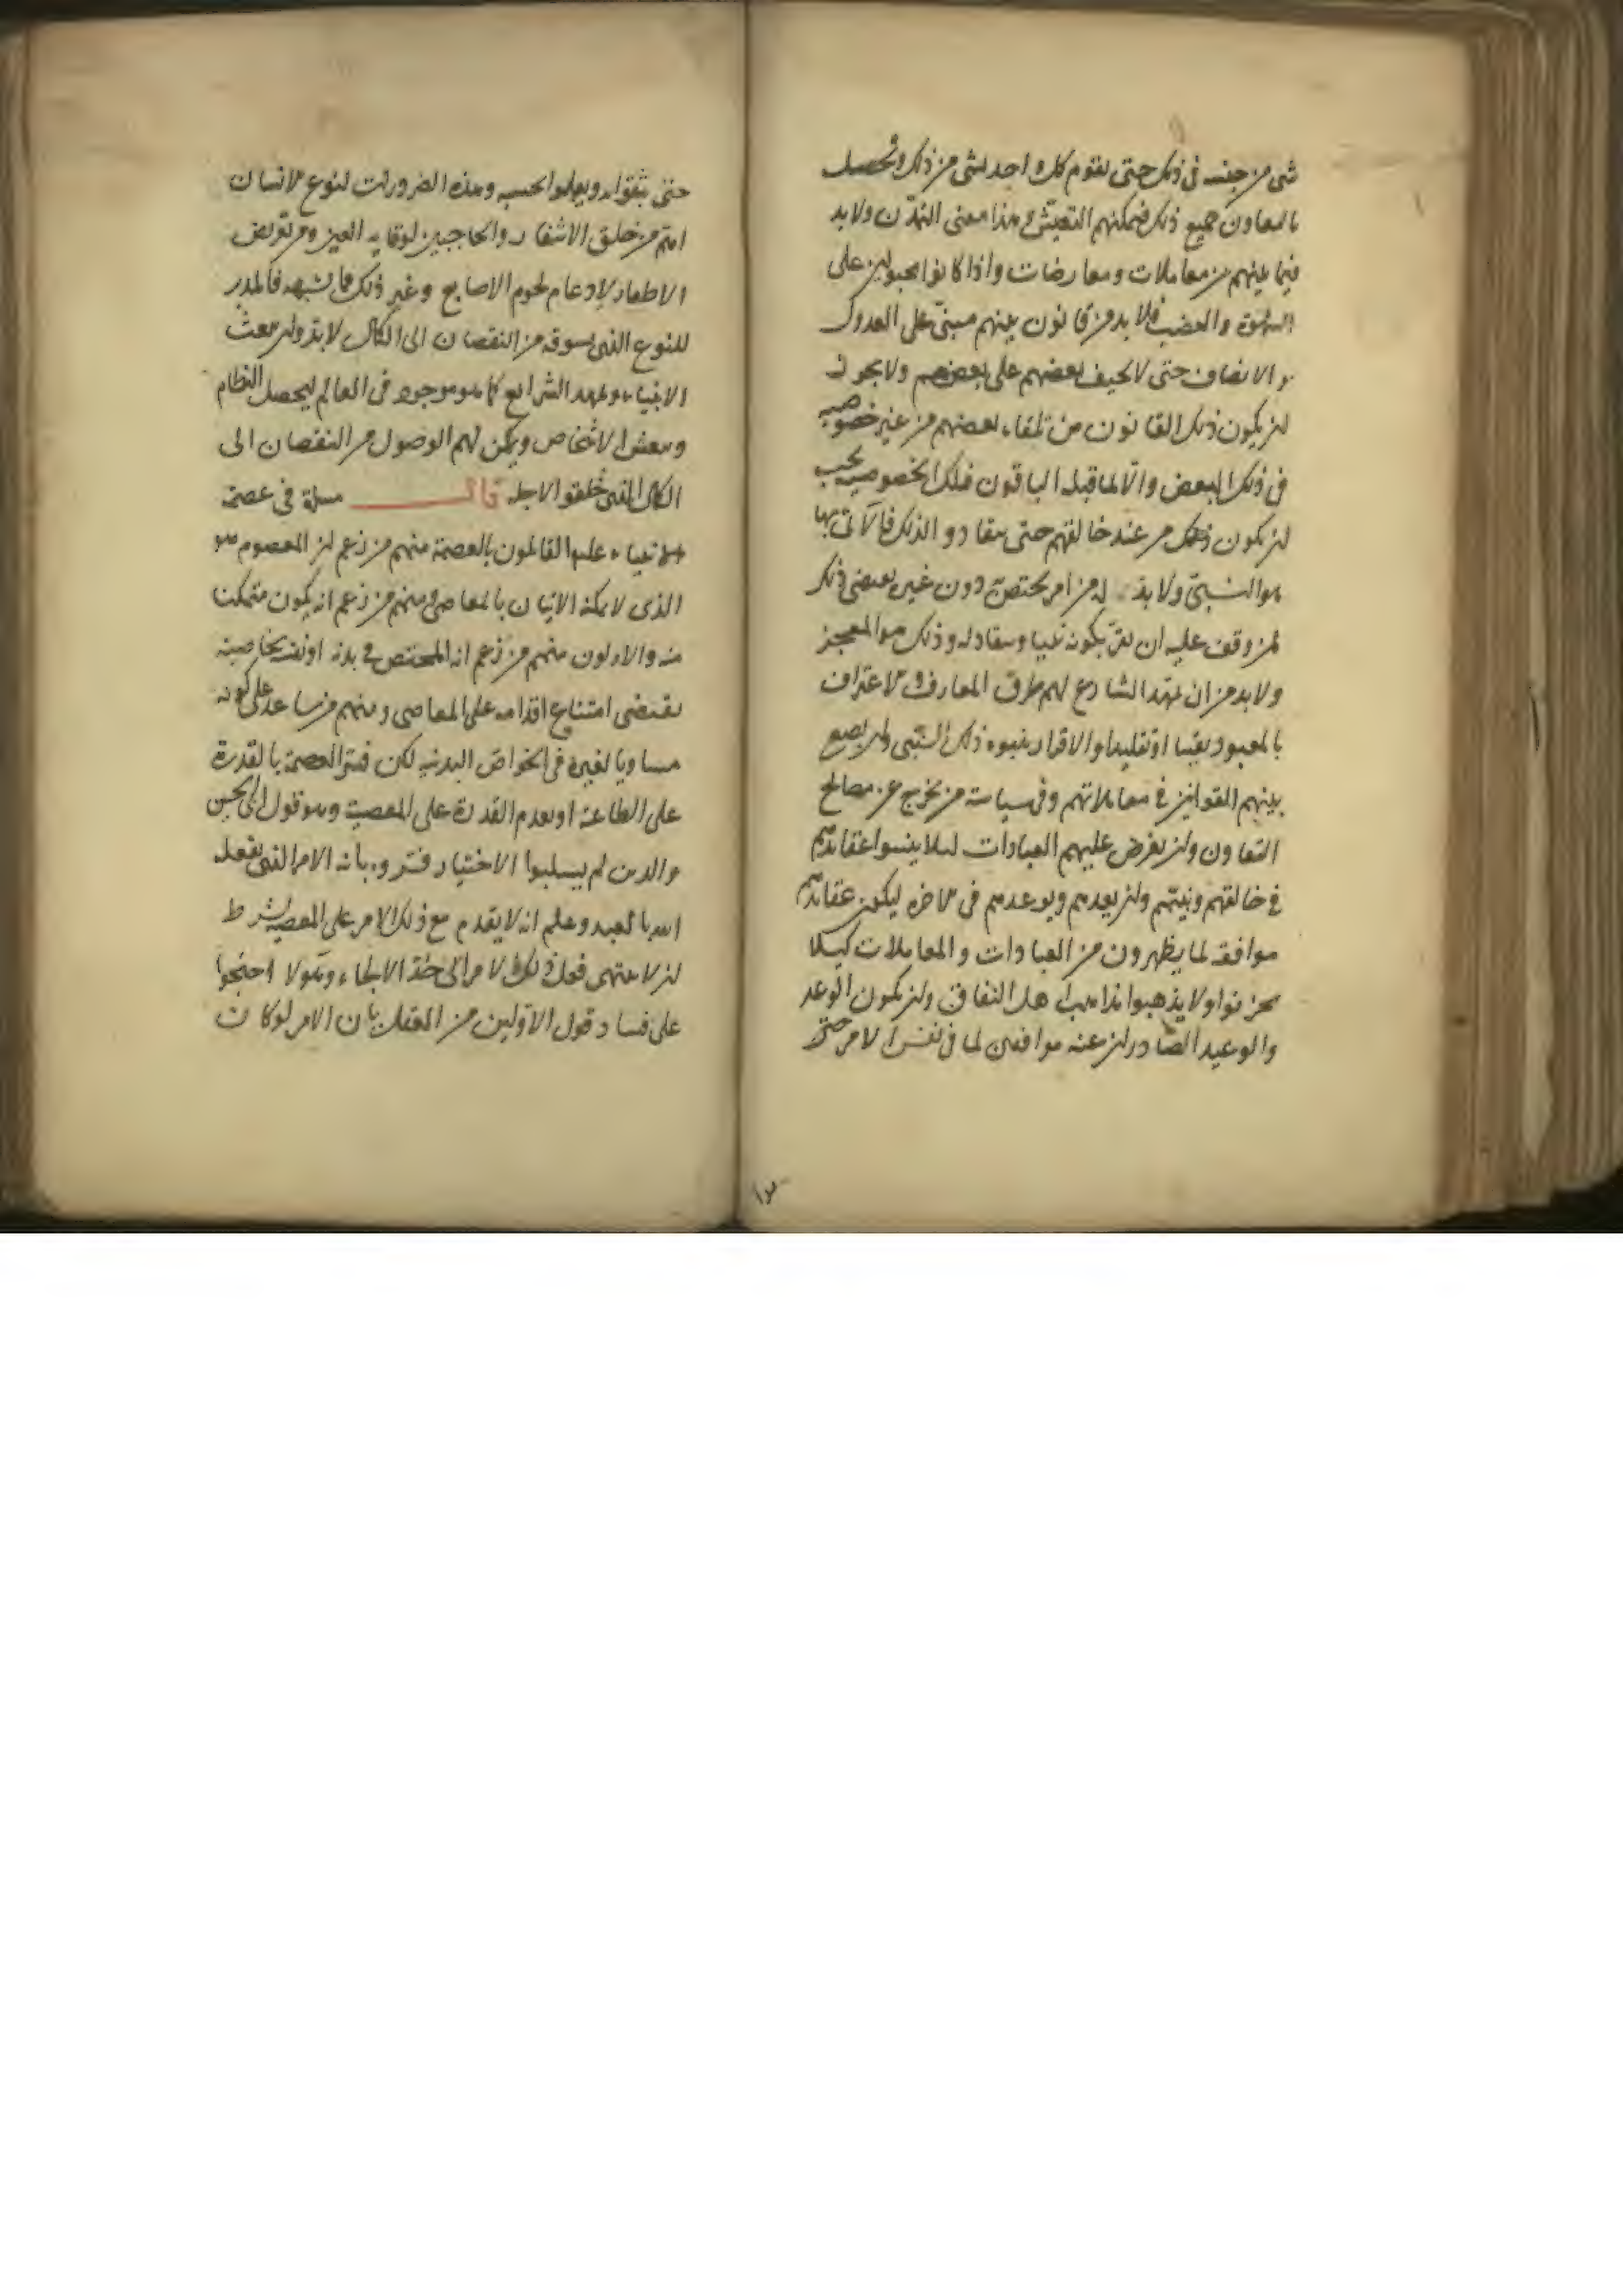 شى من جنسه فى ذلك حتى يقوم كل واحد بشى من ذلك وتحصل
بالمعاون جميع ذلك فيمكنهم التعيش وهذا معنى التمدن ولابد
فيما بينهم من معاملات ومعارضات واذا كانوا مجبولين على
الشهوة والغضب فلابد من قانون بينهم مبنى على العدل
والانصاف حتى لا يحيف بعضهم على بعضهم ولا يجوز
ان يكون ذلك القانون من تلقاء بعضهم من غير خصوصية
فى ذلك البعض والا لما قبله الباقون فتلك الخصوصية يجب
ان يكون من عند خالقهم حتى ينقادوا لذلك فالآتى بها
هو النبى ولابد له من امر يختص دون غيره يعرض ذلك
لمن وقف عليه ان يقر بكونه نبيا وينقاد له وذلك هو المعجز
ولابد من ان يمهد الشارع لهم طرق المعارف والاعتراف
بالمعبود يقينا او تقليدا والاقرار بنبوة ذلك النبى وان يضع
بينهم القوانين فى معاملاتهم وفى سياسة من يخرج عن مصالح
التعاون وان يفرض عليهم العبادات لئلا ينسوا عقائدهم
فى خالقهم ونبيهم وان يعدهم ويوعدهم فى الاخرة ليكون عقائدهم
موافقة لما يظهرون من العبادات والمعاملات كيلا
يخونوا ولا يذهبوا مذاهب اهل النفاق وان يكون الوعد
والوعيد الصادران عنه موافقين لما فى نفس الامر حتى
حتى يثقوا به ويعملوا بحسبه وهذه الضرورات لنوع الانسان
اهم من خلق الاشفار والحاجبين لوقاية العين ومن تعريض
الاظفار لادعام لحوم الاصابع وغير ذلك مما يشبهه فالمدبر
للنوع الذى يسوقه من النقصان الى الكمال لابد وان يبعث
الانبياء ويمهد الشرايع كما هو موجود فى العالم ليحصل النظام
ويتعيش الاشخاص ويمكن لهم الوصول من النقصان الى
الكمال الذى خلقوا لاجله قال مسئلة فى عصمة
الانبياء عليهم القائلون بالعصمة منهم من زعم ان المعصوم هو
الذى لا يمكنه الاتيان بالمعاصى ومنهم من زعم انه يكون متمكنا
منه والاولون منهم من زعم انه المختص فى بدنه او نفسه بخاصية
يقتضى امتناع اقدامه على المعاصى ومنهم من ساعد على كونه
مساويا لغيره فى الخواص البدنية لكن فسر العصمة بالقدرة
على الطاعة او بعدم القدرة على المعصية وهو قول ابى الحسن
والذين لم يسلبوا الاختيار فسروه بانه الامر الذى يفعله
الله بالعبد وعلم انه لا يقدم مع ذلك الامر على المعصية بشرط
ان لا ينتهى فعل ذلك الامر الى حد الالجاء وهولاء احتجوا
على فساد قول الاولين من العقل بان الامر لو كان
١٣